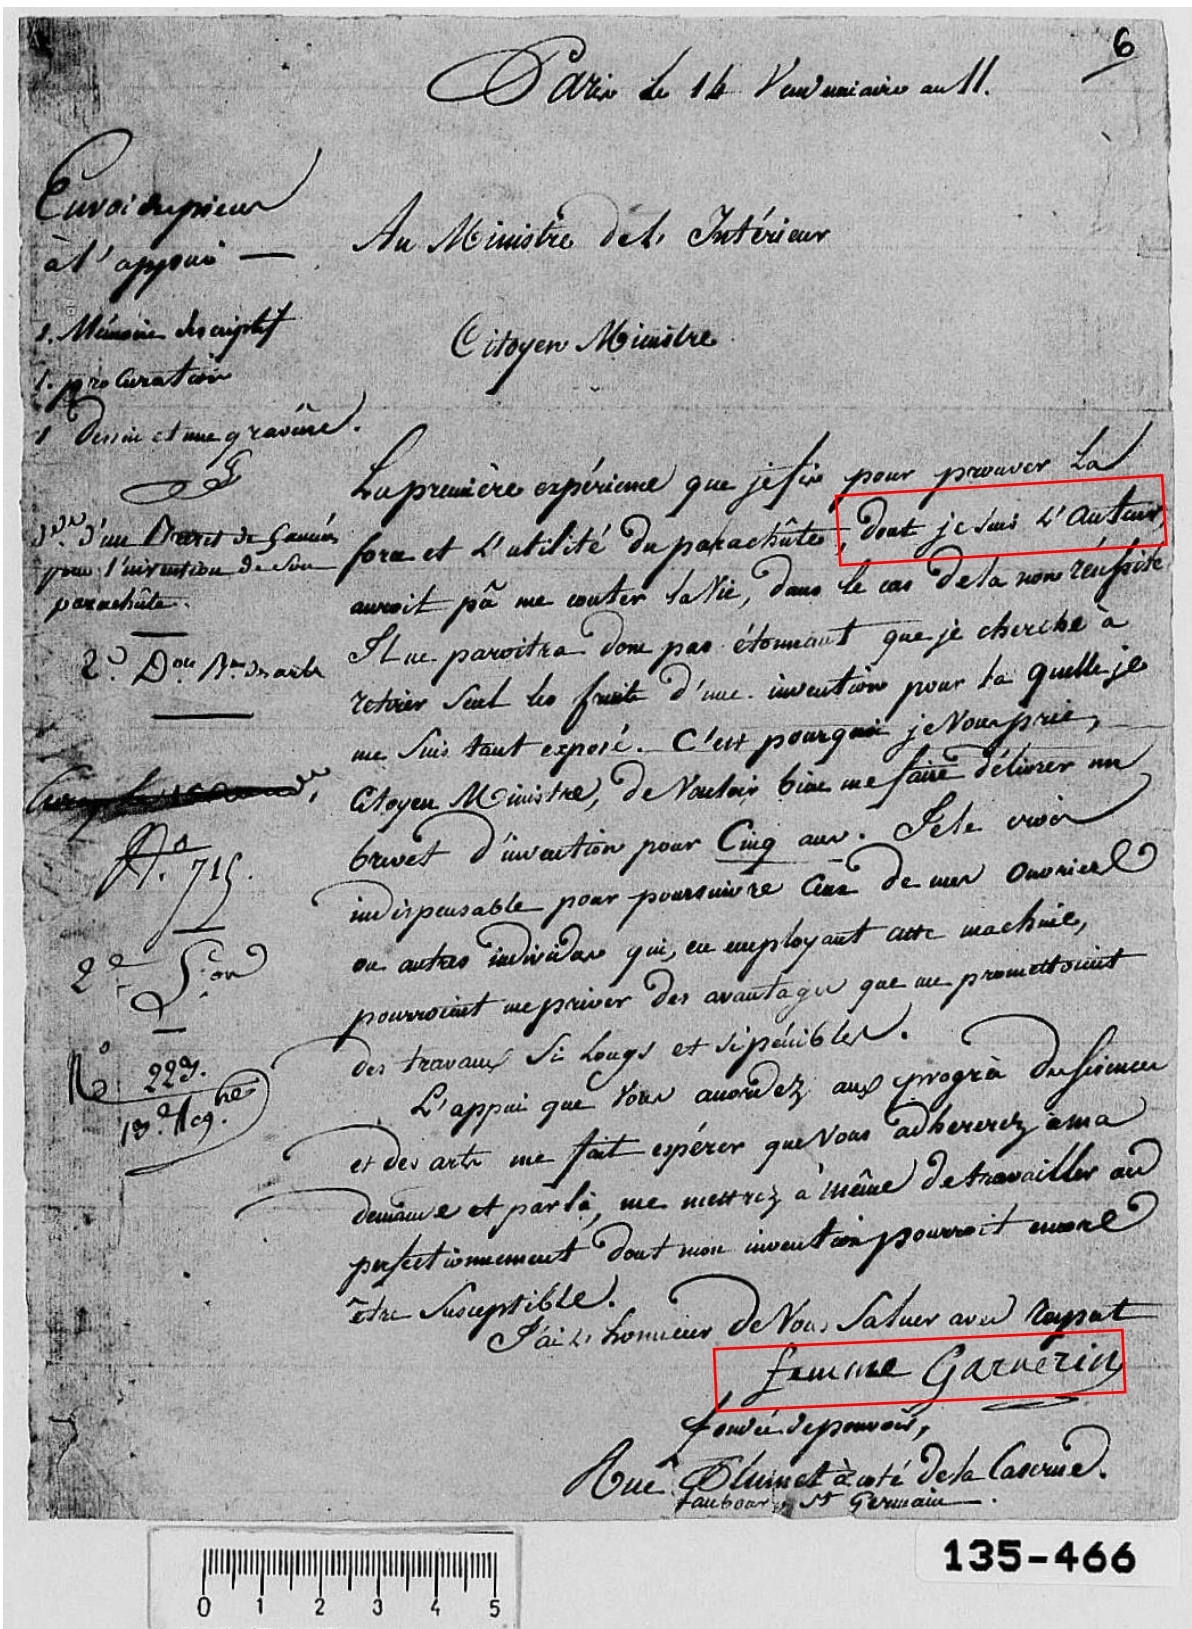 6
Paris le 14 Vendemiaire an 11.
Envoi des pieces
à l'appui —
Au Ministre de l'Intérieur
1. Mémoire descriptif
Citoyen Ministre
1. procuration
1 dessin et une gravûre.
La première expérience que je fis pour prouver la
force et l'utilité du parachûte, dont je suis l'Auteur,
d'un Brevet de
pour l'invention de son
parachûte.
auroit pû me couter la Vie, dans le cas de la non réussite
Il ne paroitra donc pas étonnant que je cherche à
2.e D.on B.au des arts
retirer seul les fruits d'une invention pour la quelle je
me suis tant exposé. C'est pourquoi je Vous prie,
Citoyen Ministre, de Vouloir bien me faire délivrer un
brevet d'invention pour Cinq ans. Je le crois
N.o 715.
indispensable pour poursuivre ceux de mes Ouvriers
ou autres individus qui, en employant cette machine,
2.e S.on
pourroient me priver des avantages que me promettoient
des travaux si longs et si pénibles.
N.o 223.
L'appui que Vous accordez aux progrès des Sciences
et des arts me fait espérer que Vous adhererez à ma
demande et par là, me mettrez à même de travailler au
perfectionnement dont mon invention pourroit encore
être susceptible.
J'ai l'honneur de Vous Saluer avec respect
femme Garnerin
fondée de pouvoir,
Rue Plumet à coté de la Caserne.
faubourg St Germain.
135-466
0 1 2 3 4 5